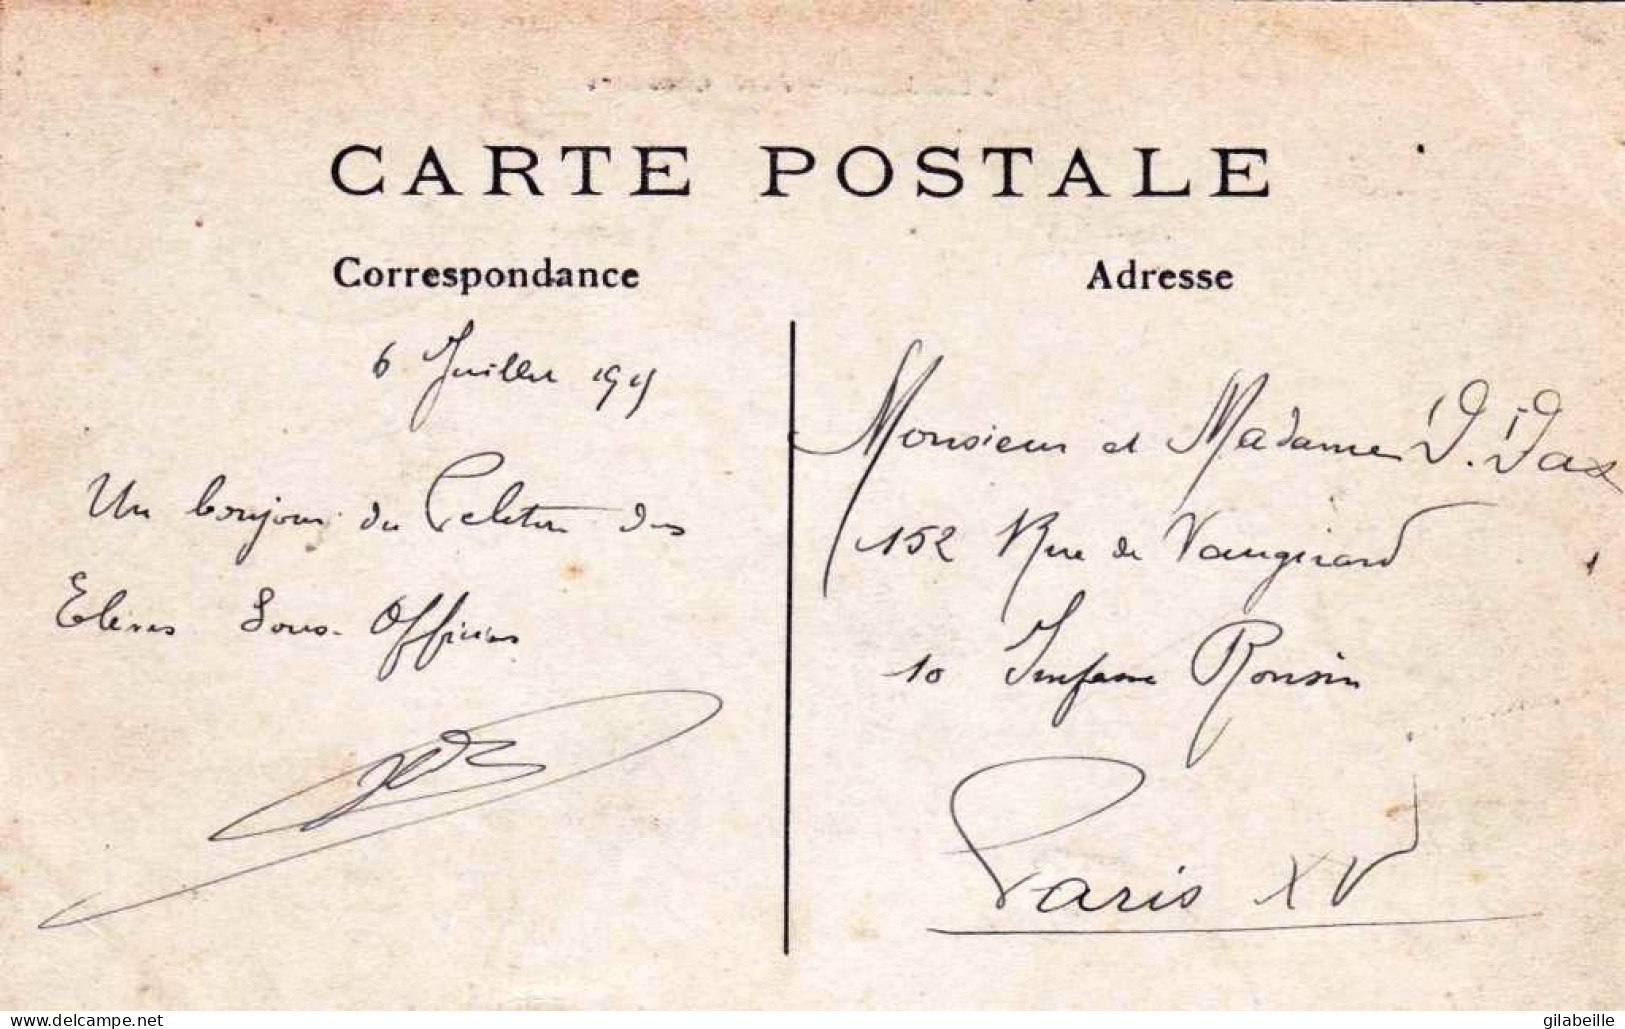 CARTE POSTALE
Correspondance
6 Juillet 1915
Un bonjour du Peloton des
Elèves Sous-Officiers
Adresse
Monsieur et Madame D. Dax
152 Rue de Vaugirard
10 Impasse Ronsin
Paris XV
www.delcampe.net
gilabeille